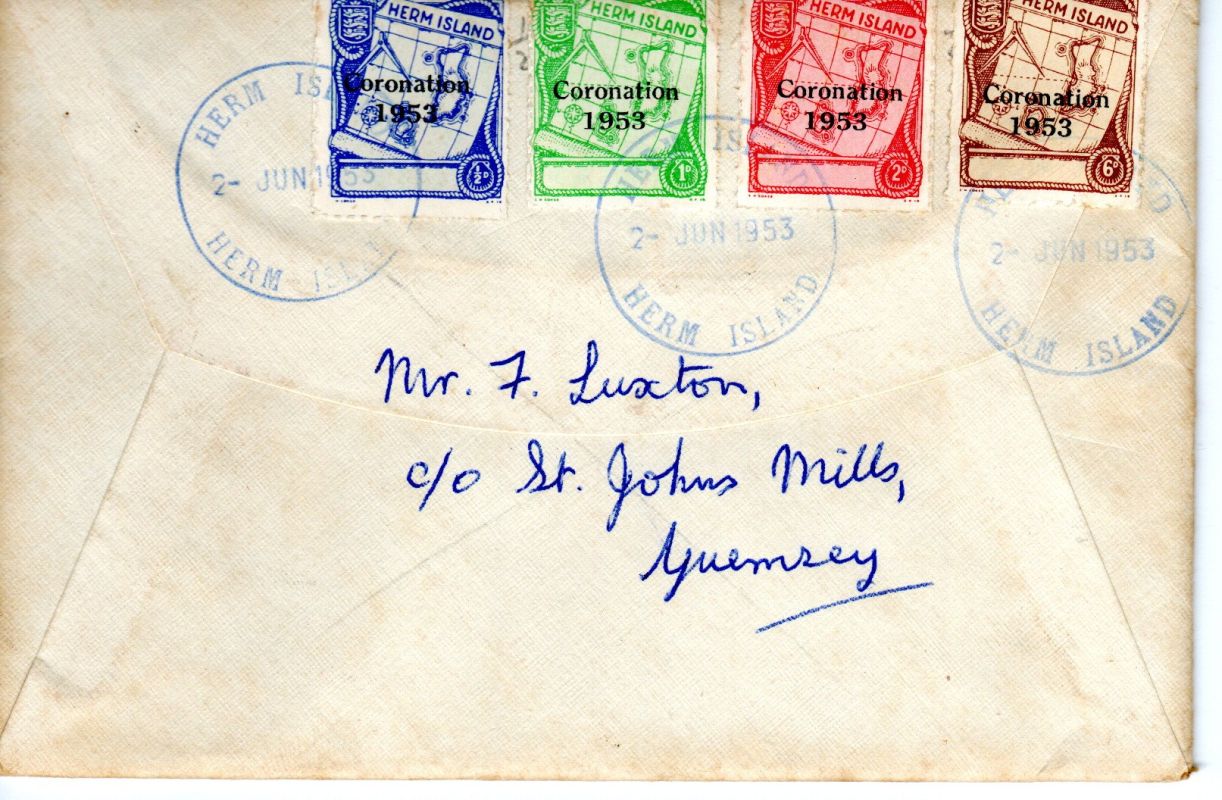 HERM ISLAND
Coronation
1953
½D
HERM ISLAND
Coronation
1953
1D
HERM ISLAND
Coronation
1953
2D
HERM ISLAND
Coronation
1953
6D
HERM ISLAND
2- JUN 1953
HERM ISLAND
HERM ISLAND
2- JUN 1953
HERM ISLAND
HERM ISLAND
2- JUN 1953
HERM ISLAND
Mr. F. Luxton,
c/o St. Johns Mills,
Guernsey